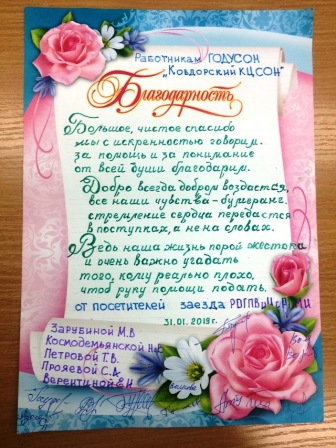 Работникам ГОАУСОН
"Ковдорский КЦСОН"
Благодарность
Большое, чистое спасибо
мы с искренностью говорим.
за помощь и за понимание
от всей души благодарим.
Добро всегда добром воздастся,
все наши чувства-бумеранг.
стремление сердца передастся
в поступках, а не на словах.
Ведь наша жизнь порой жестока
и очень важно угадать
того, кому реально плохо,
чтоб руку помощи подать.
от посетителей заезда
31.01.2019г.
Зарубиной М.В
Космодемьянской Н.В
Петровой Т.В.
Прояевой С.А.
Верентиной Е.Н